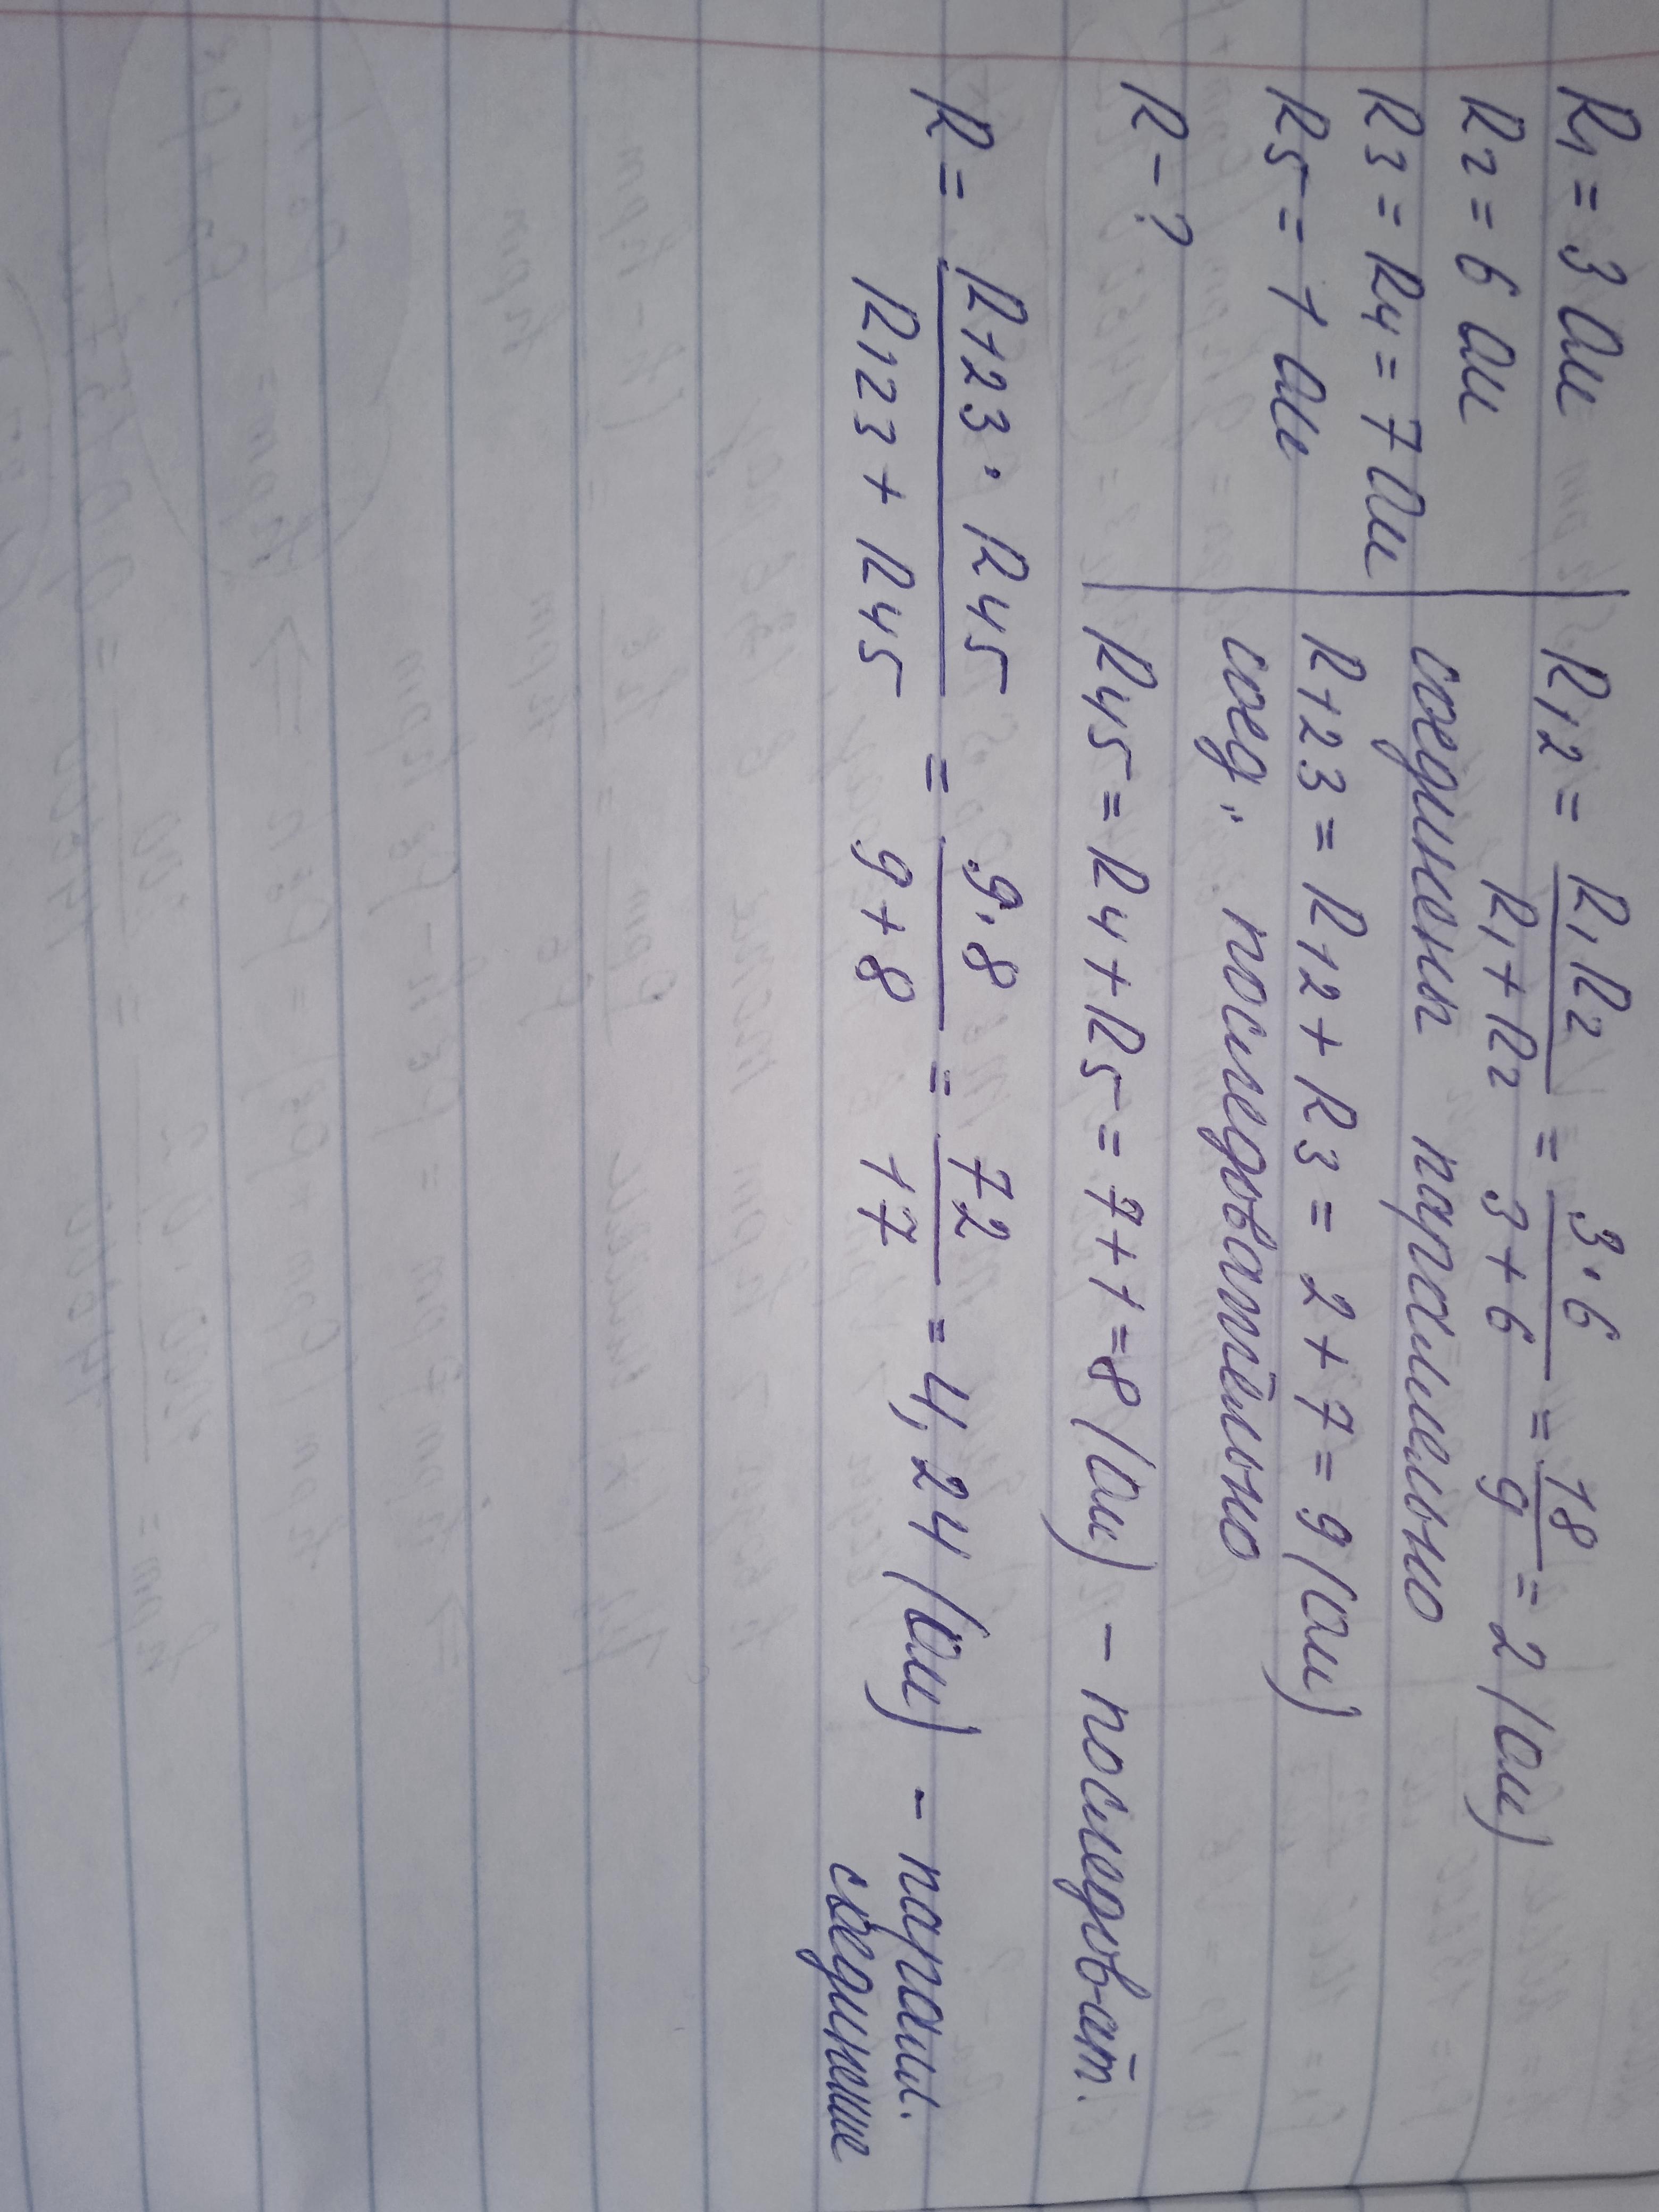 R1 = 3 Ом
R2 = 6 Ом
R3 = R4 = 7 Ом
R5 = 1 Ом
R - ?
R12 = R1 R2 / R1 + R2 = 3·6 / 3+6 = 18 / 9 = 2 (Ом)
соединены параллельно
R123 = R12 + R3 = 2 + 7 = 9 (Ом)
соед. последовательно
R45 = R4 + R5 = 7 + 1 = 8 (Ом) - последоват.
R = R123 · R45 / R123 + R45 = 9·8 / 9+8 = 72 / 17 = 4,24 (Ом) - паралл.
соединение